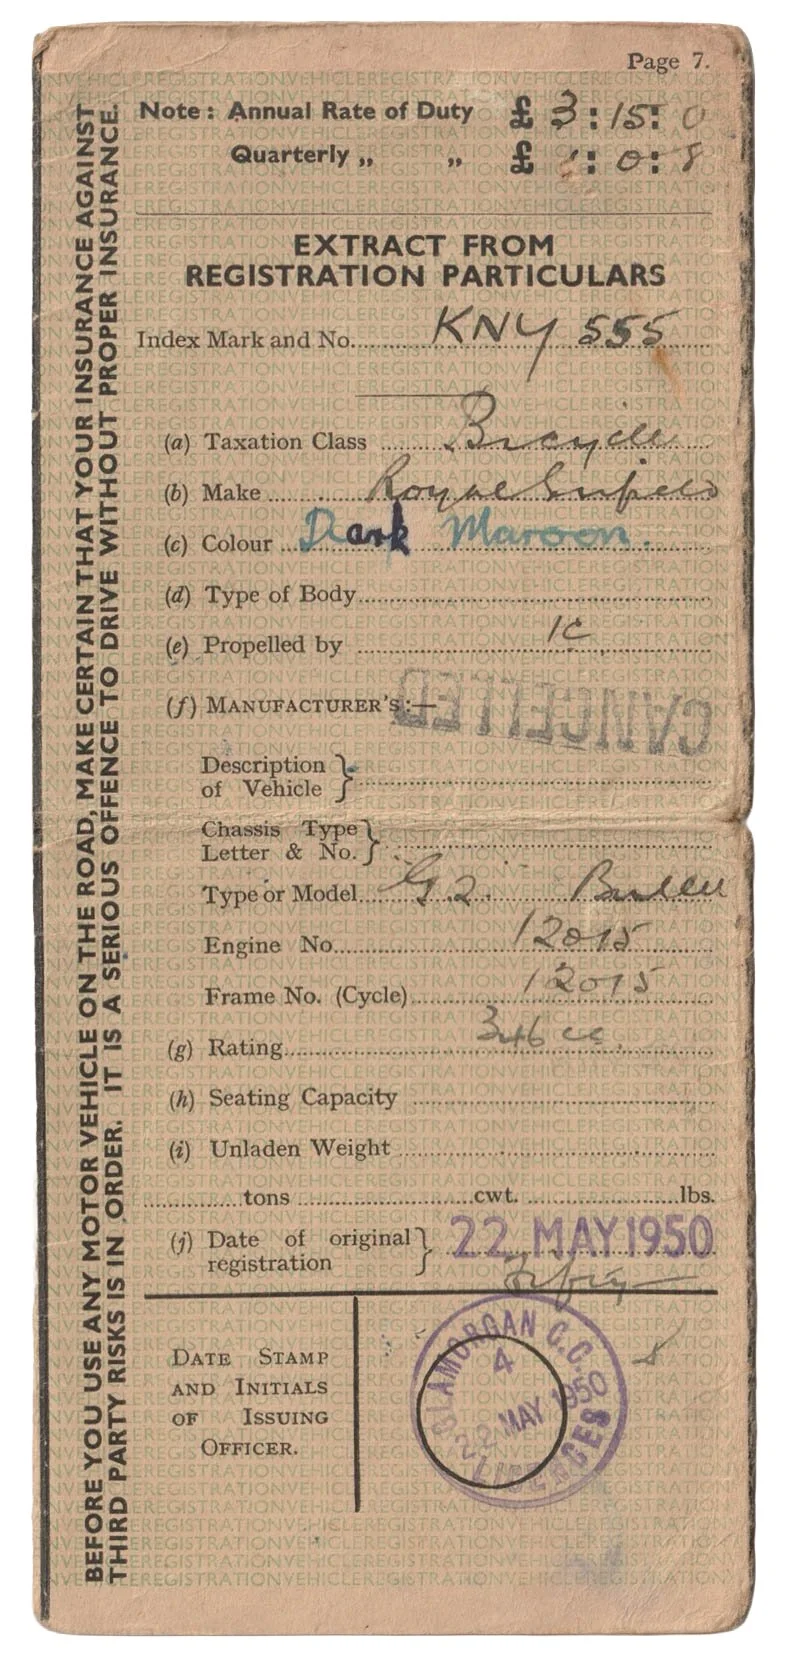 Page 7.
Note: Annual Rate of Duty £ 3 : 15 : 0
Quarterly „ „ £ 1 : 0 : 8
EXTRACT FROM
REGISTRATION PARTICULARS
Index Mark and No. KNY 555
(a) Taxation Class Bicycle
(b) Make Royal Enfield
(c) Colour Dark Maroon.
(d) Type of Body
(e) Propelled by IC
(f) MANUFACTURER'S:—
CANCELLED
Description
of Vehicle
Chassis Type
Letter & No.
Type or Model G2. Bullet
Engine No. 12015
Frame No. (Cycle) 12015
(g) Rating 346 cc.
(h) Seating Capacity
(i) Unladen Weight
tons cwt. lbs.
(j) Date of original
registration 22 MAY 1950
Fifty
DATE STAMP
AND INITIALS
OF ISSUING
OFFICER.
GLAMORGAN C.C.
4
22 MAY 1950
LICENCES
BEFORE YOU USE ANY MOTOR VEHICLE ON THE ROAD, MAKE CERTAIN THAT YOUR INSURANCE AGAINST
THIRD PARTY RISKS IS IN ORDER. IT IS A SERIOUS OFFENCE TO DRIVE WITHOUT PROPER INSURANCE.